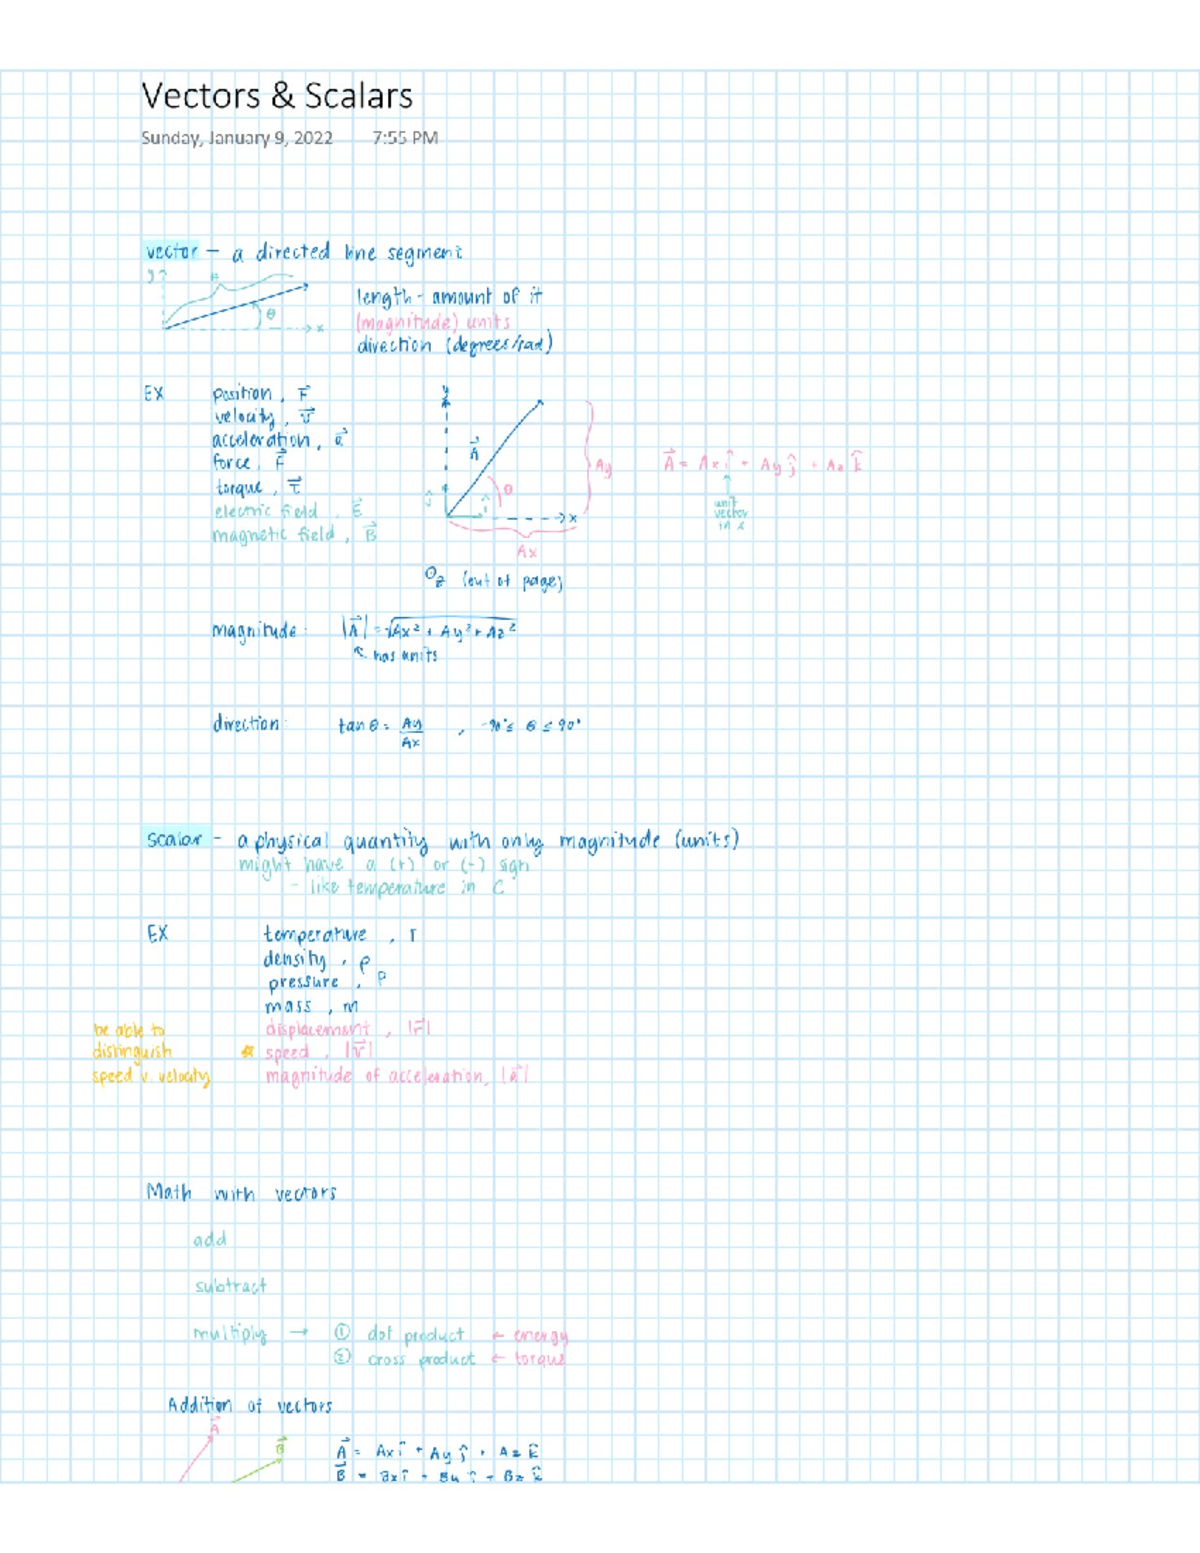 Vectors & Scalars
Sunday, January 9, 2022 7:55 PM
vector - a directed line segment
y
θ
x
length - amount of it
(magnitude) units
direction (degrees/rad)
EX position, r⃗
velocity, v⃗
acceleration, a⃗
force, F⃗
torque, τ⃗
electric field, E⃗
magnetic field, B⃗
y
A⃗
θ
ĵ
î
x
Ay
Ax
z (out of page)
A⃗ = Ax î + Ay ĵ + Az k̂
unit
vector
in x
magnitude: |A⃗| = √Ax² + Ay² + Az²
has units
direction: tan θ = Ay/Ax , -90° ≤ θ ≤ 90°
scalar - a physical quantity with only magnitude (units)
might have a (+) or (-) sign
- like temperature in C
EX temperature, T
density, ρ
pressure, P
mass, m
displacement, |r⃗|
speed, |v⃗|
magnitude of acceleration, |a⃗|
be able to
distinguish
speed v velocity
Math with vectors
add
subtract
multiply → ① dot product ← energy
② cross product ← torque
Addition of vectors
A⃗
B⃗
A⃗ = Ax î + Ay ĵ + Az k̂
B⃗ = Bx î + By ĵ + Bz k̂